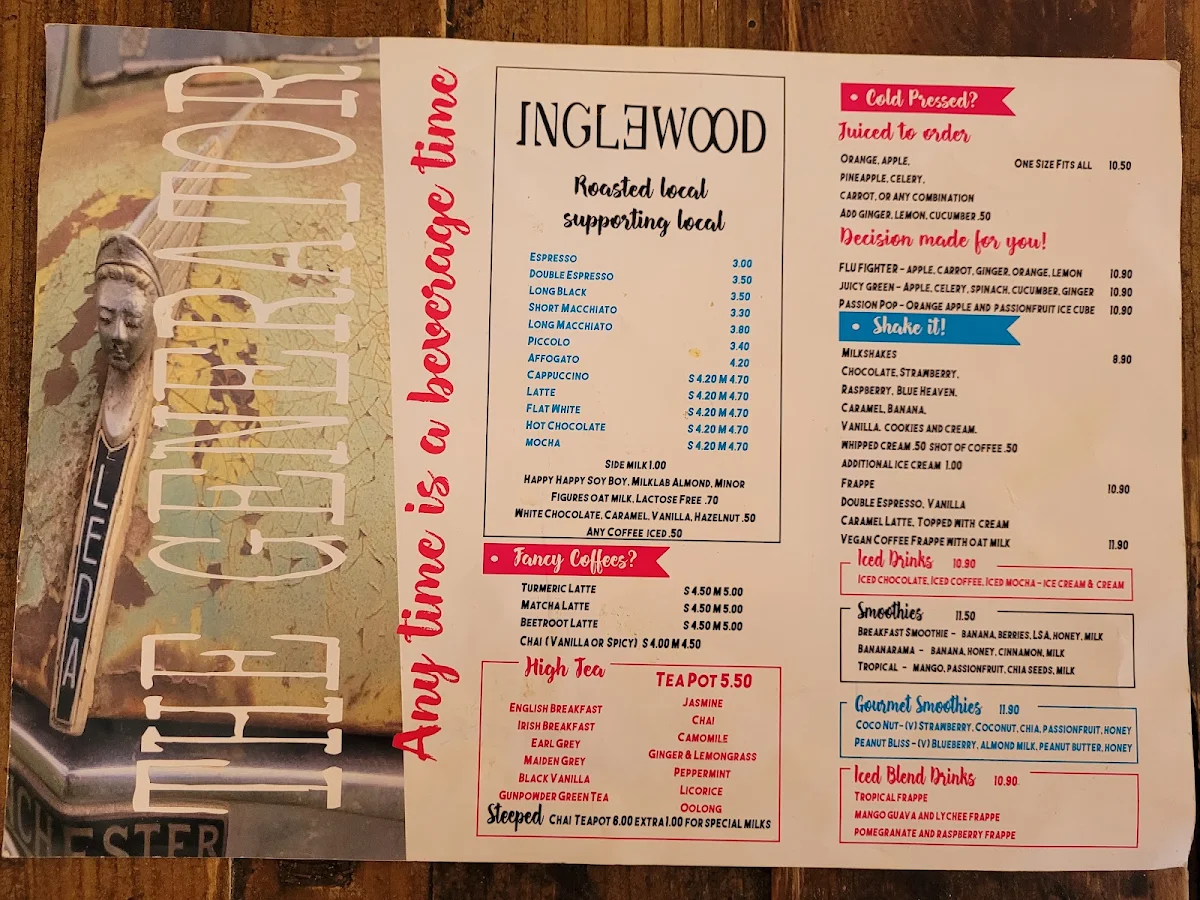 THE GENERATOR
LEDA
CHESTER
Any time is a beverage time
INGLEWOOD
Roasted local
supporting local
ESPRESSO 3.00
DOUBLE ESPRESSO 3.50
LONG BLACK 3.50
SHORT MACCHIATO 3.30
LONG MACCHIATO 3.80
PICCOLO 3.40
AFFOGATO 4.20
CAPPUCCINO S 4.20 M 4.70
LATTE S 4.20 M 4.70
FLAT WHITE S 4.20 M 4.70
HOT CHOCOLATE S 4.20 M 4.70
MOCHA S 4.20 M 4.70
SIDE MILK 1.00
HAPPY HAPPY SOY BOY, MILKLAB ALMOND, MINOR
FIGURES OAT MILK, LACTOSE FREE .70
WHITE CHOCOLATE, CARAMEL, VANILLA, HAZELNUT .50
ANY COFFEE ICED .50
• Fancy Coffees?
TURMERIC LATTE S 4.50 M 5.00
MATCHA LATTE S 4.50 M 5.00
BEETROOT LATTE S 4.50 M 5.00
CHAI (VANILLA OR SPICY) S 4.00 M 4.50
High Tea
TEA POT 5.50
ENGLISH BREAKFAST
IRISH BREAKFAST
EARL GREY
MAIDEN GREY
BLACK VANILLA
GUNPOWDER GREEN TEA
JASMINE
CHAI
CAMOMILE
GINGER & LEMONGRASS
PEPPERMINT
LICORICE
OOLONG
Steeped CHAI TEAPOT 6.00 EXTRA 1.00 FOR SPECIAL MILKS
• Cold Pressed?
Juiced to order
ORANGE, APPLE, ONE SIZE FITS ALL 10.50
PINEAPPLE, CELERY,
CARROT, OR ANY COMBINATION
ADD GINGER, LEMON, CUCUMBER .50
Decision made for you!
FLU FIGHTER - APPLE, CARROT, GINGER, ORANGE, LEMON 10.90
JUICY GREEN - APPLE, CELERY, SPINACH, CUCUMBER, GINGER 10.90
PASSION POP - ORANGE APPLE AND PASSIONFRUIT ICE CUBE 10.90
• Shake it!
MILKSHAKES 8.90
CHOCOLATE, STRAWBERRY,
RASPBERRY, BLUE HEAVEN,
CARAMEL, BANANA,
VANILLA. COOKIES AND CREAM.
WHIPPED CREAM .50 SHOT OF COFFEE .50
ADDITIONAL ICE CREAM 1.00
FRAPPE 10.90
DOUBLE ESPRESSO, VANILLA
CARAMEL LATTE, TOPPED WITH CREAM
VEGAN COFFEE FRAPPE WITH OAT MILK 11.90
Iced Drinks 10.90
ICED CHOCOLATE, ICED COFFEE, ICED MOCHA - ICE CREAM & CREAM
Smoothies 11.50
BREAKFAST SMOOTHIE - BANANA, BERRIES, LSA, HONEY, MILK
BANANARAMA - BANANA, HONEY, CINNAMON, MILK
TROPICAL - MANGO, PASSIONFRUIT, CHIA SEEDS, MILK
Gourmet Smoothies 11.90
COCO NUT- (V) STRAWBERRY, COCONUT, CHIA, PASSIONFRUIT, HONEY
PEANUT BLISS - (V) BLUEBERRY, ALMOND MILK, PEANUT BUTTER, HONEY
Iced Blend Drinks 10.90
TROPICAL FRAPPE
MANGO GUAVA AND LYCHEE FRAPPE
POMEGRANATE AND RASPBERRY FRAPPE